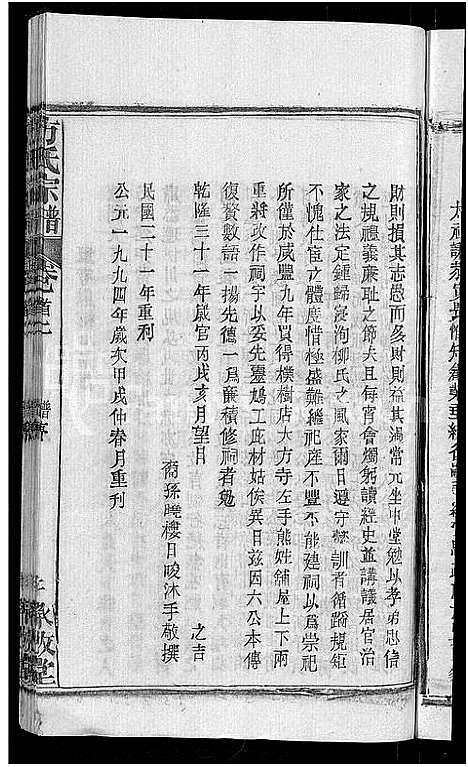 財則損其志愚而多財則益其過常元坐中堂勉以孝弟忠信
之規禮義廉恥之節夫且每宵會燭躬讀經史並講議居官治
家之法定鍾歸寢洵柳氏之風家爾日遵守彝訓者循蹈規矩
不愧仕宦之體度惜極盛難繼祀產不豐不能建祠以爲崇祀
所僅於咸豐九年買得樸樹店大方寺左手熊姓鋪屋上下兩
重將改作祠宇以妥先靈鳩工庇材姑俟異日茲因六公本傳
復贅數語一揚先德一爲蘄積修祠者勉
乾隆三十一年歲官丙戌亥月望日
之吉
裔孫曉樓日晙沐手敬撰
民國二十一年重刊
公元一九九四年歲次甲戌仲春月重刊
方氏宗譜
卷首二
譜序
敦堂